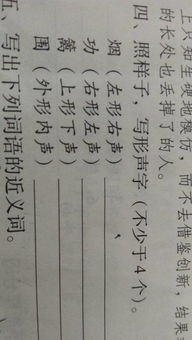 上只知生硬地模仿，而不去借鉴创新，结果
的长处也丢掉了的人。
四、照样子，写形声字（不少于4个）。
烟（左形右声）
功（右形左声）
篱（上形下声）
围（外形内声）
五、写出下列词语的近义词。